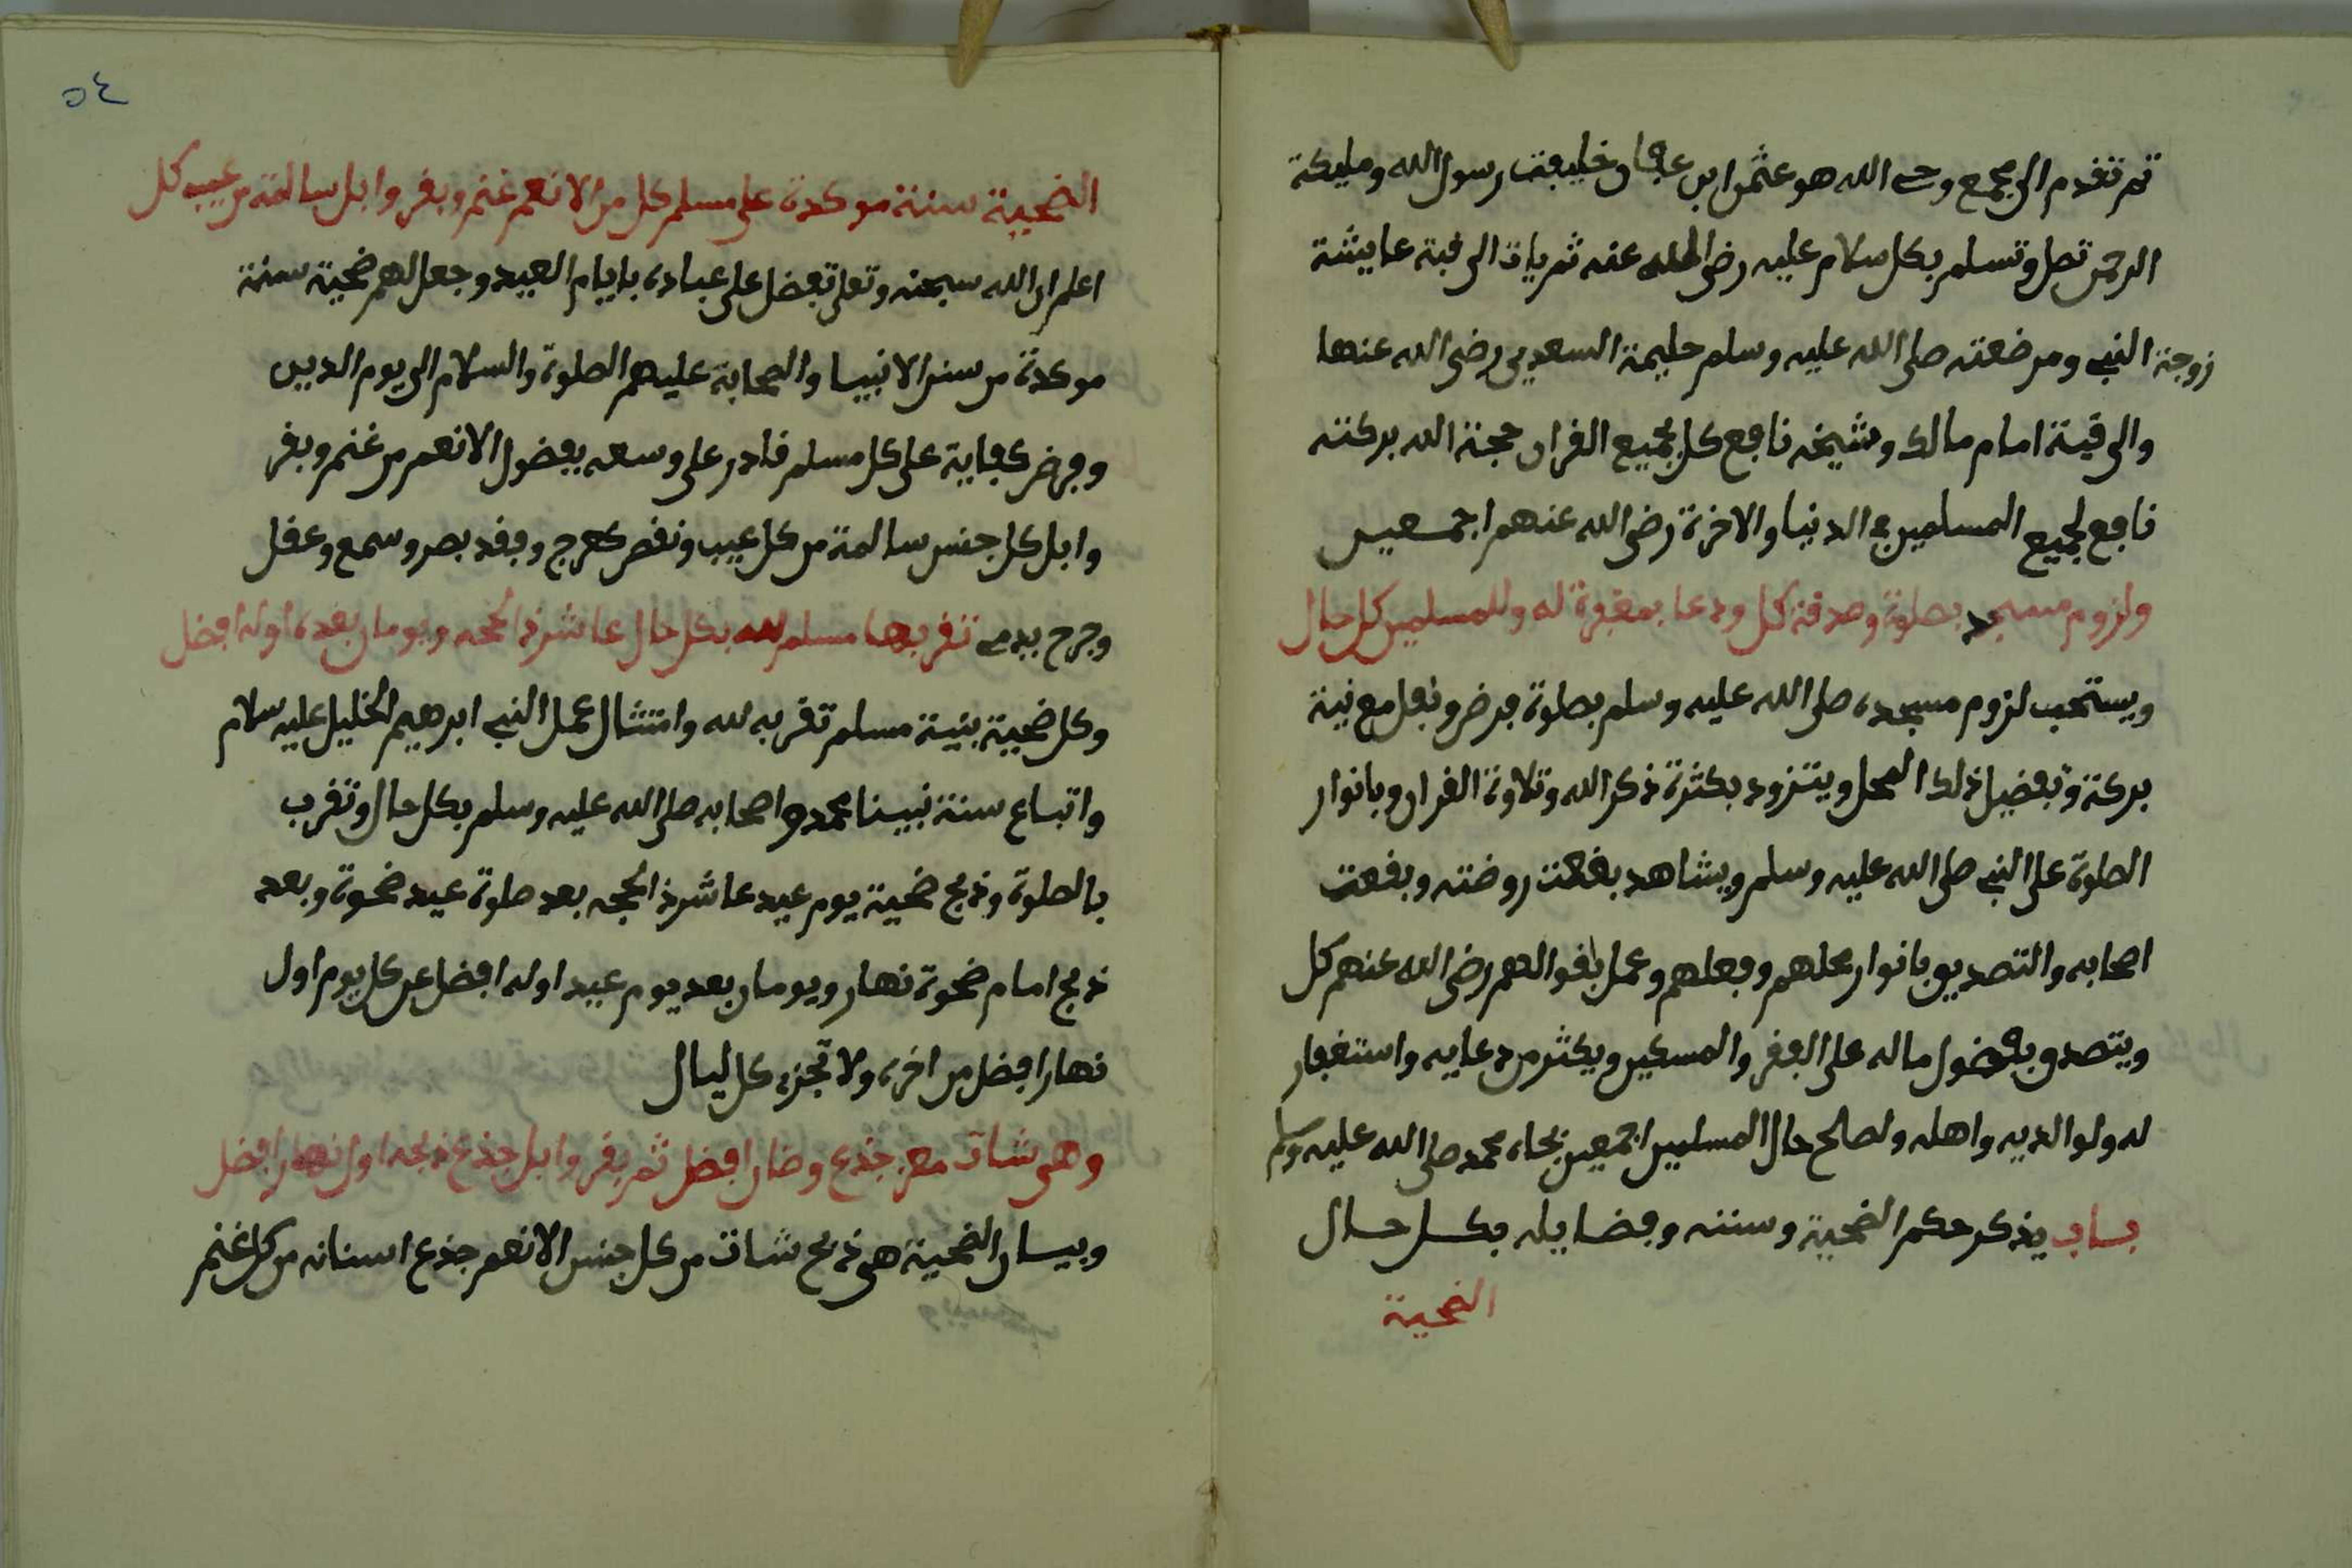 ثم تقدم الى مجمع وحى الله هو عثمن ابن عفان خليفت رسول الله ومليكة
الرحمن تصل وتسلم بكل سلام عليه رضى الله عنه ثم يات الى قبة عايشة
زوجة النبى ومرضعته صلى الله عليه وسلم حليمة السعديى رضى الله عنها
والى قبة امام مالك وشيخه نافع كل بجميع القران حجة الله بركته
نافع لجميع المسلمين فى الدنيا والاخرة رضى الله عنهم اجمعين
ولزوم مسجد بصلوة وصدقة كل ودعا بمغفرة له وللمسلمين كل حال
ويستحب لزوم مسجده صلى الله عليه وسلم بصلوة فرض ونفل مع نية
بركة وتفضيل ذلك المحل ويتزود بكثرة ذكر الله وتلاوة القران وبانوار
الصلوة على النبى صلى الله عليه وسلم ويشاهد بقعت روضته وبقعت
اصحابه والتصديق بانوار محلهم وفعلهم وعمل باقوالهم رضى الله عنهم كل
ويتصدق بفضول ماله على الفقر والمسكين ويكثر من دعايه واستغفار
له ولوالديه واهله ولصالح حال المسلمين اجمعين بجاه محمد صلى الله عليه وسلم
باب يذكر حكم الضحية وسننه وفضايله بكل حال
الضحية
٥٤
الضحية سنة موكدة على مسلم كل من الانعم غنم وبقر وابل سالمة من عيب كل
اعلم ان الله سبحنه وتعلى تفضل على عباده بايام العيد وجعل لهم ضحية سنة
موكدة من سنن الانبيا والصحابة عليهم الصلوة والسلام الى يوم الدين
وفرض كفاية على كل مسلم قادر على وسعه بفضول الانعم من غنم وبقر
وابل كل جنس سالمة من كل عيب ونقص كعرج وفقد بصر وسمع وعقل
وجرح بدمى تقربها مسلم لله بكل حال عاشر ذالحجه ويومان بعده اوله افضل
وكل ضحية بنية مسلم تقربه لله وامتثال عمل النبى ابرهيم الخليل عليه سلام
واتباع سنة نبينا محمد واصحابه صلى الله عليه وسلم بكل حال وتقرب
بالصلوة وذبح ضحية يوم عيد عاشر ذالحجه بعد صلوة عيد ضحوة وبعد
ذبح امام ضحوة نهار ويومان بعد يوم عيد اوله افضل عن كل يوم اول
نهار افضل من اخره ولا تجزء كل ليال
وهى شات معز جذع وضان افضل ثم بقر وابل جذع ذبحه اول نهار افضل
وبيان الضحية هى ذبح شات من كل جنس الانعم جذع اسنانه من كل غنم